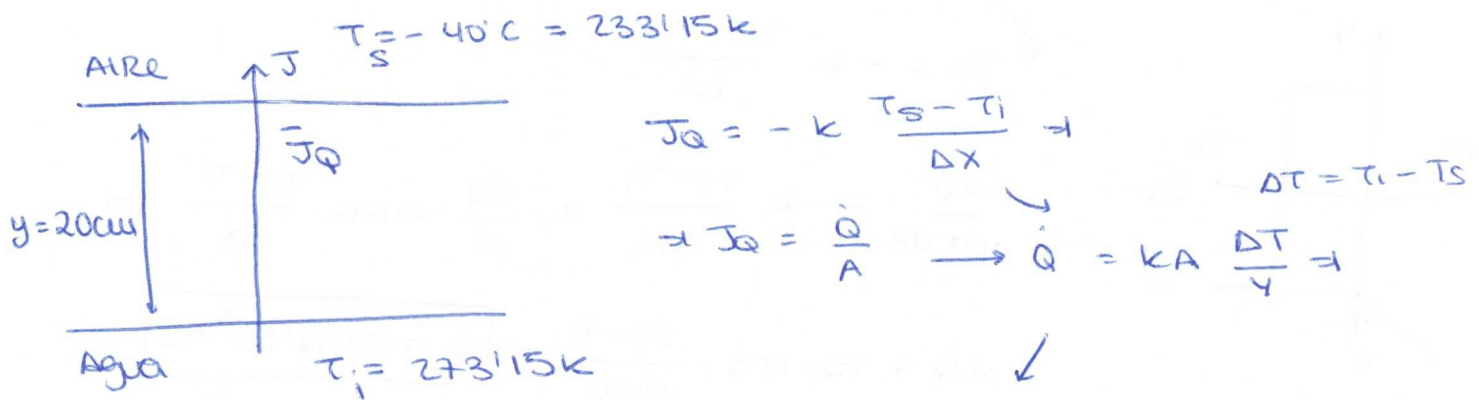 T_S = - 40°C = 233'15 K
AIRE
J
J̄_Q
y = 20cm
Agua
T_i = 273'15 K
J_Q = - k \frac{T_S - T_i}{ΔX} ⇒
ΔT = T_i - T_S
⇒ J_Q = \frac{Q̇}{A} → Q̇ = kA \frac{ΔT}{y} ⇒